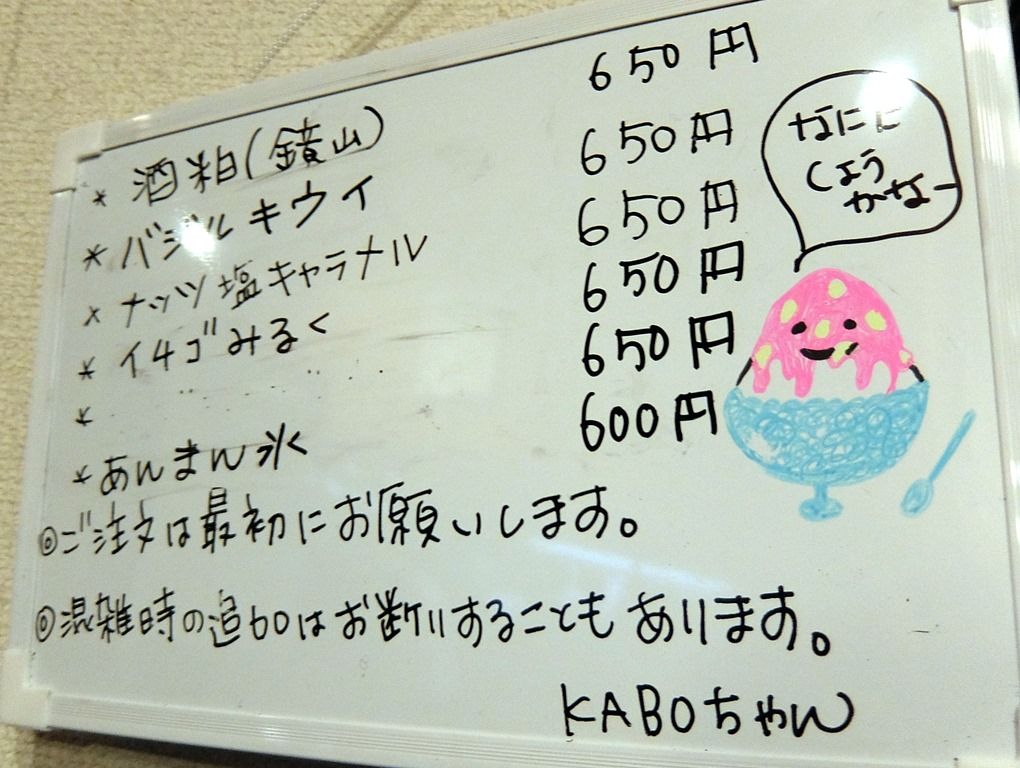 * 酒粕(鏡山) 650円
* バジルキウイ 650円
* ナッツ塩キャラメル 650円
* イチゴみるく 650円
* 650円
* あんまん氷 600円
◎ご注文は最初にお願いします。
◎混雑時の追加はお断りすることもあります。
KABOちゃん
なにに
しょう
かなー